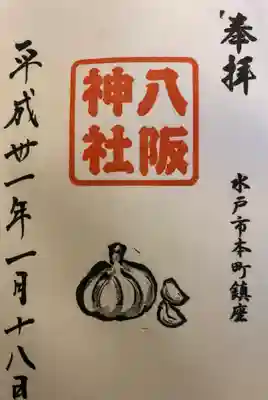 奉拝
水戸市本町鎮座
八阪
神社
平成廿一年一月十八日